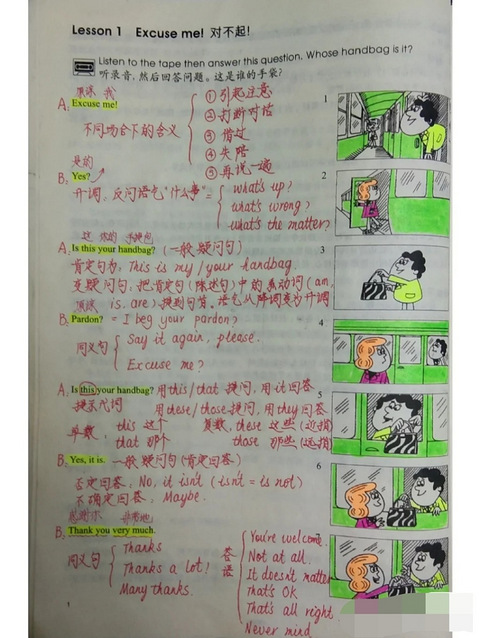 Lesson 1 Excuse me! 对不起!
Listen to the tape then answer this question. Whose handbag is it?
听录音,然后回答问题。这是谁的手袋?
原谅 我
A: Excuse me!
不同场合下的含义
① 引起注意
② 打断对话
③ 借过
④ 失陪
⑤ 再说一遍
1
是的
B: Yes?
升调, 反问语气"什么事" =
what's up?
what's wrong?
what's the matter?
2
这 你的 手提包
A: Is this your handbag? (一般疑问句)
肯定句为: This is my / your handbag.
变疑问句: 把肯定句(陈述句)中的系动词(am,
is. are) 提到句首. 语气从降调变为升调
3
原谅
B: Pardon? = I beg your pardon?
同义句
Say it again, please.
Excuse me?
4
A: Is this your handbag? 用this/that 提问, 用it回答
指示代词 用these/those提问, 用they回答
单数, this 这个 复数, these 这些 (近指)
that 那个 those 那些 (远指)
5
B: Yes, it is. 一般疑问句(肯定回答)
否定回答: No, it isn't (isn't = is not)
不确定回答: Maybe.
6
感谢你 非常地
B: Thank you very much.
同义句
Thanks
Thanks a lot!
Many thanks.
答语
You're welcome.
Not at all.
It doesn't matter
That's OK
That's all right
Never mind
1